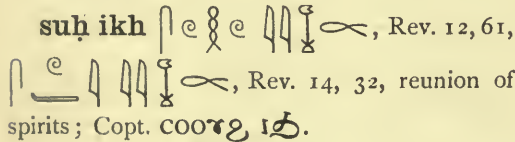 suḥ ikh 𓋴𓏲𓎛𓏲𓇋𓇋, Rev. 12, 61,
, Rev. 14, 32, reunion of
spirits; Copt. ⲥⲟⲟⲩϩ ⲓϧ.